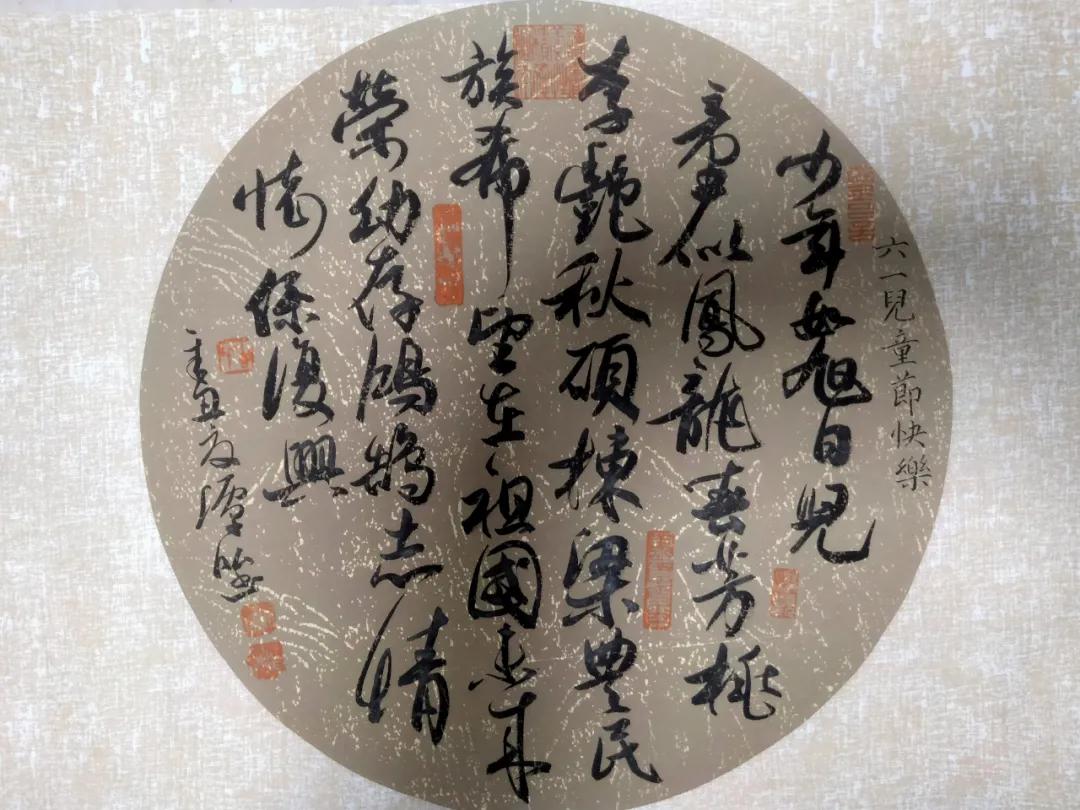 六一兒童節快樂
少年如旭日兒
童似鳳龍春芳桃
李艷秋碩棟梁豐民
族希望在祖國未來
榮幼存鴻鵠志情
懷係復興
辛丑夏